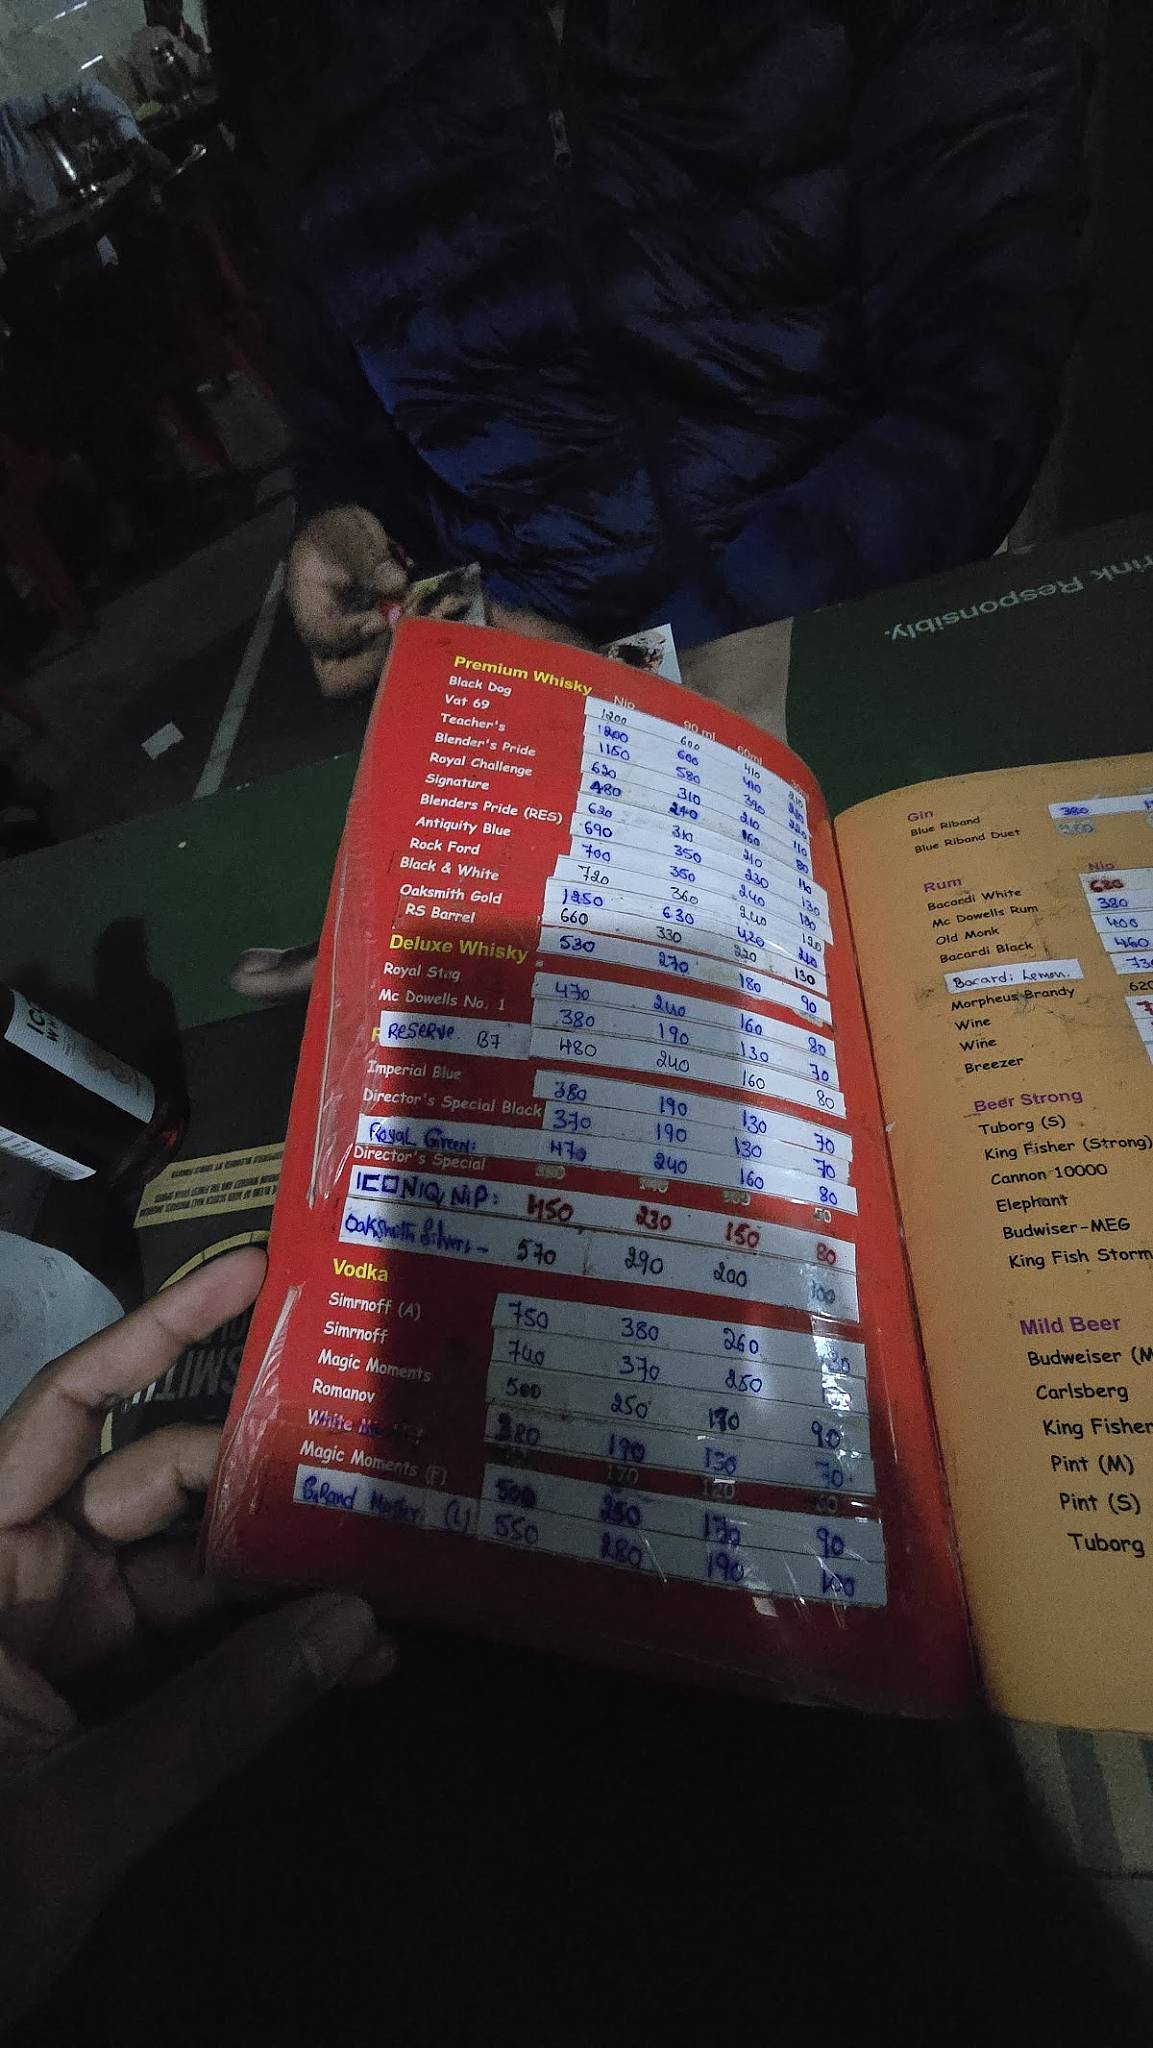 rink Responsibly.
Premium Whisky Nip 90 ml 60ml
Black Dog 1200 600 410
Vat 69 1200 600 410
Teacher's 1150 580 390
Blender's Pride 620 310 210 110
Royal Challenge 480 240 160 80
Signature 620 310 210 110
Blenders Pride (RES) 690 350 230 130
Antiquity Blue 700 350 240
Rock Ford 720 360 240
Black & White 1250 630 420
Oaksmith Gold 660 330 220 130
RS Barrel 530 270 180 90
Deluxe Whisky
Royal Stag 470 240 160 80
Mc Dowells No. 1 380 190 130 70
Reserve B7 480 240 160 80
Imperial Blue 380 190 130 70
Director's Special Black 370 190 130 70
Royal Green: 470 240 160 80
Director's Special 50
ICONIQ NiP: 450 230 150 80
Oaksmith Silver - 570 290 200 100
Vodka
Simrnoff (A) 750 380 260
Simrnoff 740 370 250
Magic Moments 500 250 170 90
Romanov 380 190 130 70
White 170 120 60
Magic Moments (F) 500 250 170 90
Grand Master (L) 550 280 190 100
Gin
Blue Riband 380
Blue Riband Duet
Rum Nip
Bacardi White 620
Mc Dowells Rum 380
Old Monk 400
Bacardi Black 460
Bacardi Lemon.
Morpheus Brandy 620
Wine
Wine
Breezer
Beer Strong
Tuborg (S)
King Fisher (Strong)
Cannon 10000
Elephant
Budwiser-MEG
King Fish Storm
Mild Beer
Budweiser (M
Carlsberg
King Fisher
Pint (M)
Pint (S)
Tuborg